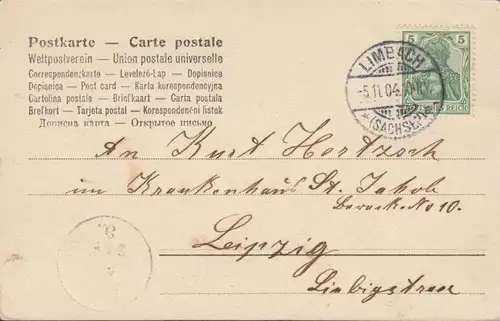 Postkarte — Carte postale
Weltpostverein — Union postale universelle
Correspondenzkarte — Levelező-Lap — Dopisnice
Dopisnica — Post card — Karta korespondencyjna
Cartolina postale — Briefkaart — Carta postala
Brefkort — Tarjeta postal — Korespondeni listok
Дописна карта — Открытое письмо
5 5
LIMBACH
5.11.04
*(SACHSEN)
REICH
An Kurt Hertzsch
im Krankenhaus St. Jakob
Barack No 10.
Leipzig
Liebigstrasse